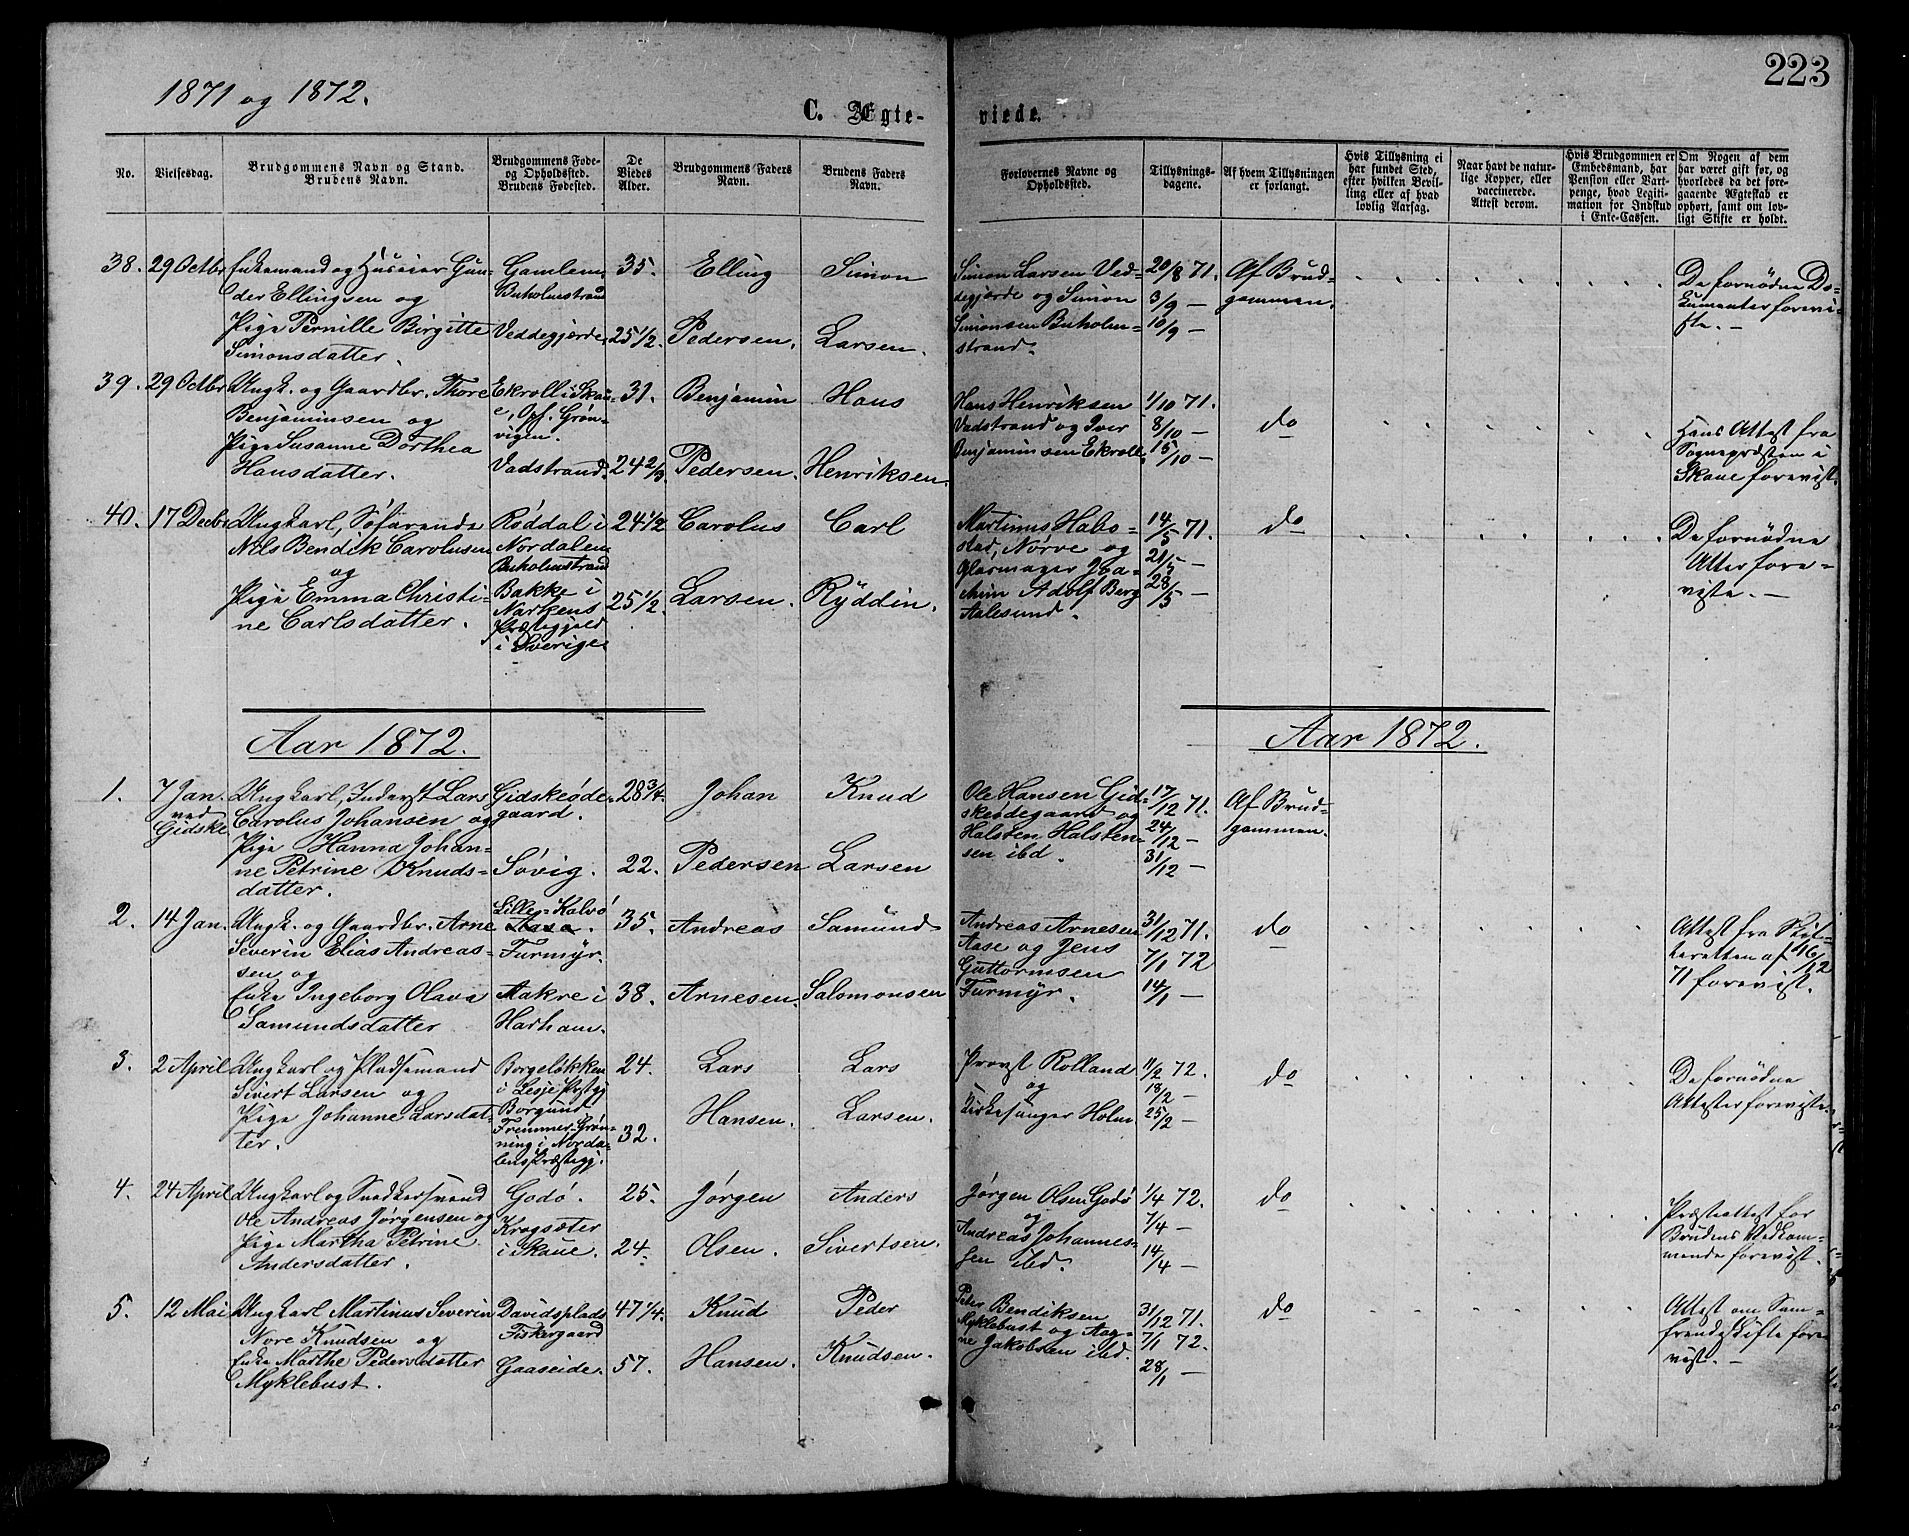 223
1871 og 1872.
C. Ægte-
viede.
No.
Vielsesdag.
Brudgommens Navn og Stand.
Brudens Navn.
Brudgommens Føde-
og Opholdssted.
Brudens Fødested.
De
Viedes
Alder.
Brudgommens Faders
Navn.
Brudens Faders
Navn.
Forlovernes Navne og
Opholdssted.
Tillysnings-
dagene.
Af hvem Tillysningen
er forlangt.
Hvis Tillysning ei
har fundet Sted,
efter hvilken Bevil-
ling eller af hvad
lovlig Aarsag.
Naar havt de natur-
lige Kopper, eller
vaccinerede.
Attest derom.
Hvis Brudgommen er
Embedsmand, har
Pension eller Vart-
penge, hvad Legiti-
mation for Indskud
i Enke-Cassen.
Om Nogen af dem
har været gift før, og
hvorledes da det fore-
gaaende Ægteskab er
ophørt, samt om lov-
ligt Skifte er holdt.
38. 29 Octbr
Enkemand og Huseier Gun-
der Ellingsen og
Pige Pernille Birgitte
Simonsdatter.
Gamlem
Buholmstrand
Veddegjerde
35.
25 1/2.
Elling
Pedersen.
Simon
Larsen.
Simon Larsen Ved-
degjerde og Simon
Simonsen Buholm-
strand.
20/8 71.
3/9 —
10/9 —
Af Brud-
gommen.
De fornødne Do-
kumenter forevi-
ste. —
39. 29 Octbr
Ungk. og Gaardbr. Thore
Benjaminsen og
Pige Susanne Dorthea
Hansdatter.
Ekroll i Skau-
e, Opf. Grøn-
vigen.
Vadstrand.
31.
24 2/3
Benjamin
Pedersen.
Hans
Henriksen.
Hans Henriksen
Vadstrand og Iver
Benjaminsen Ekroll.
1/10 71.
8/10 —
15/10 —
do
Hans Attest fra
Sognepræsten i
Skaue forevist.
40. 17 Decbr
Ungkarl, Søfarende
Nils Bendik Carolusen
og
Pige Emma Christi-
ne Carlsdatter.
Røddal i
Nordalen
Buholmstrand
Bakke i
Narkens
Præstegjæld
i Sverige
24 1/2
25 1/2.
Carolus
Larsen.
Carl
Ryddin.
Martinus Habo-
stad, Nørve og
Glarmager Joa-
chim Adolf Berg
Aalesund.
14/5 71.
21/5 —
28/5 —
do
De fornødne
Atter fore-
viste. —
Aar 1872.
Aar 1872.
1. 7 Jan.
ved
Gidske
Ungkarl, Inderst Lars
Carolus Johansen og
Pige Hanna Johan-
ne Petrine Knuds-
datter.
Gidskeøde-
gaard.
Søvig.
28 3/4.
22.
Johan
Pedersen
Knud
Larsen
Ole Hansen Gid-
skeødegaard og
Halsten Halsten-
sen ibd.
17/12 71.
24/12 —
31/12 —
Af Brud-
gommen.
2. 14 Jan.
Ungk. og Gaardbr. Arne
Severin Elias Andreas-
sen og
Enke Ingeborg Olava
Samundsdatter
Lille-Kalvø
Aase.
Furmyr.
Aakre i
Harham.
35.
38.
Andreas
Arnesen.
Samund
Salomonsen
Andreas Arnesen
Aase og Jens
Guttormsen
Furmyr.
31/12 71.
7/1 72
14/1 —
do
Attest fra Skif-
teretten af 16/12
71 forevist.
3. 2 April
Ungkarl og Pladsemand
Sivert Larsen og
Pige Johanne Larsdat-
ter.
Borgeløkken
i Lesje Præstgj
Borgund
Fremmer-Grøn-
ning i Norda-
lens Præstegj.
24.
32.
Lars
Hansen.
Lars
Larsen.
Provst Rolland
og
Kirkesanger Holm
11/2 72.
18/2 —
25/2 —
do
De fornødne
Attester foreviste.
4. 24 April
Ungkarl og Snedkersvend
Ole Andreas Jørgensen og
Pige Martha Petrine
Andersdatter.
Godø.
Krogsæter
i Skaue.
25.
24.
Jørgen
Olsen.
Anders
Sivertsen.
Jørgen Olsen Godø
og
Andreas Johannes-
sen ibd.
1/4 72.
7/4 —
14/4 —
do
Præsteattest for
Brudens Vedkom-
mende forevist.
5. 12 Mai
Ungkarl Martinus Severin
Nore Knudsen og
Enke Marthe Pedersdatter
Myklebust.
Davidsplads
Fiskergaard
Gaaseide.
47 1/4.
57.
Knud
Hansen.
Peder
Knudsen.
Peter Bendiksen
Myklebust og Aag-
ne Jakobsen ibd.
31/12 71.
7/1 72.
28/1 —
do
Attest om Sam-
frendeskifte fore-
vist. —